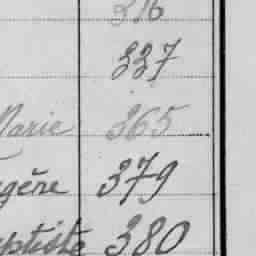 316
337
Marie 365
gère 379
aptiste 380